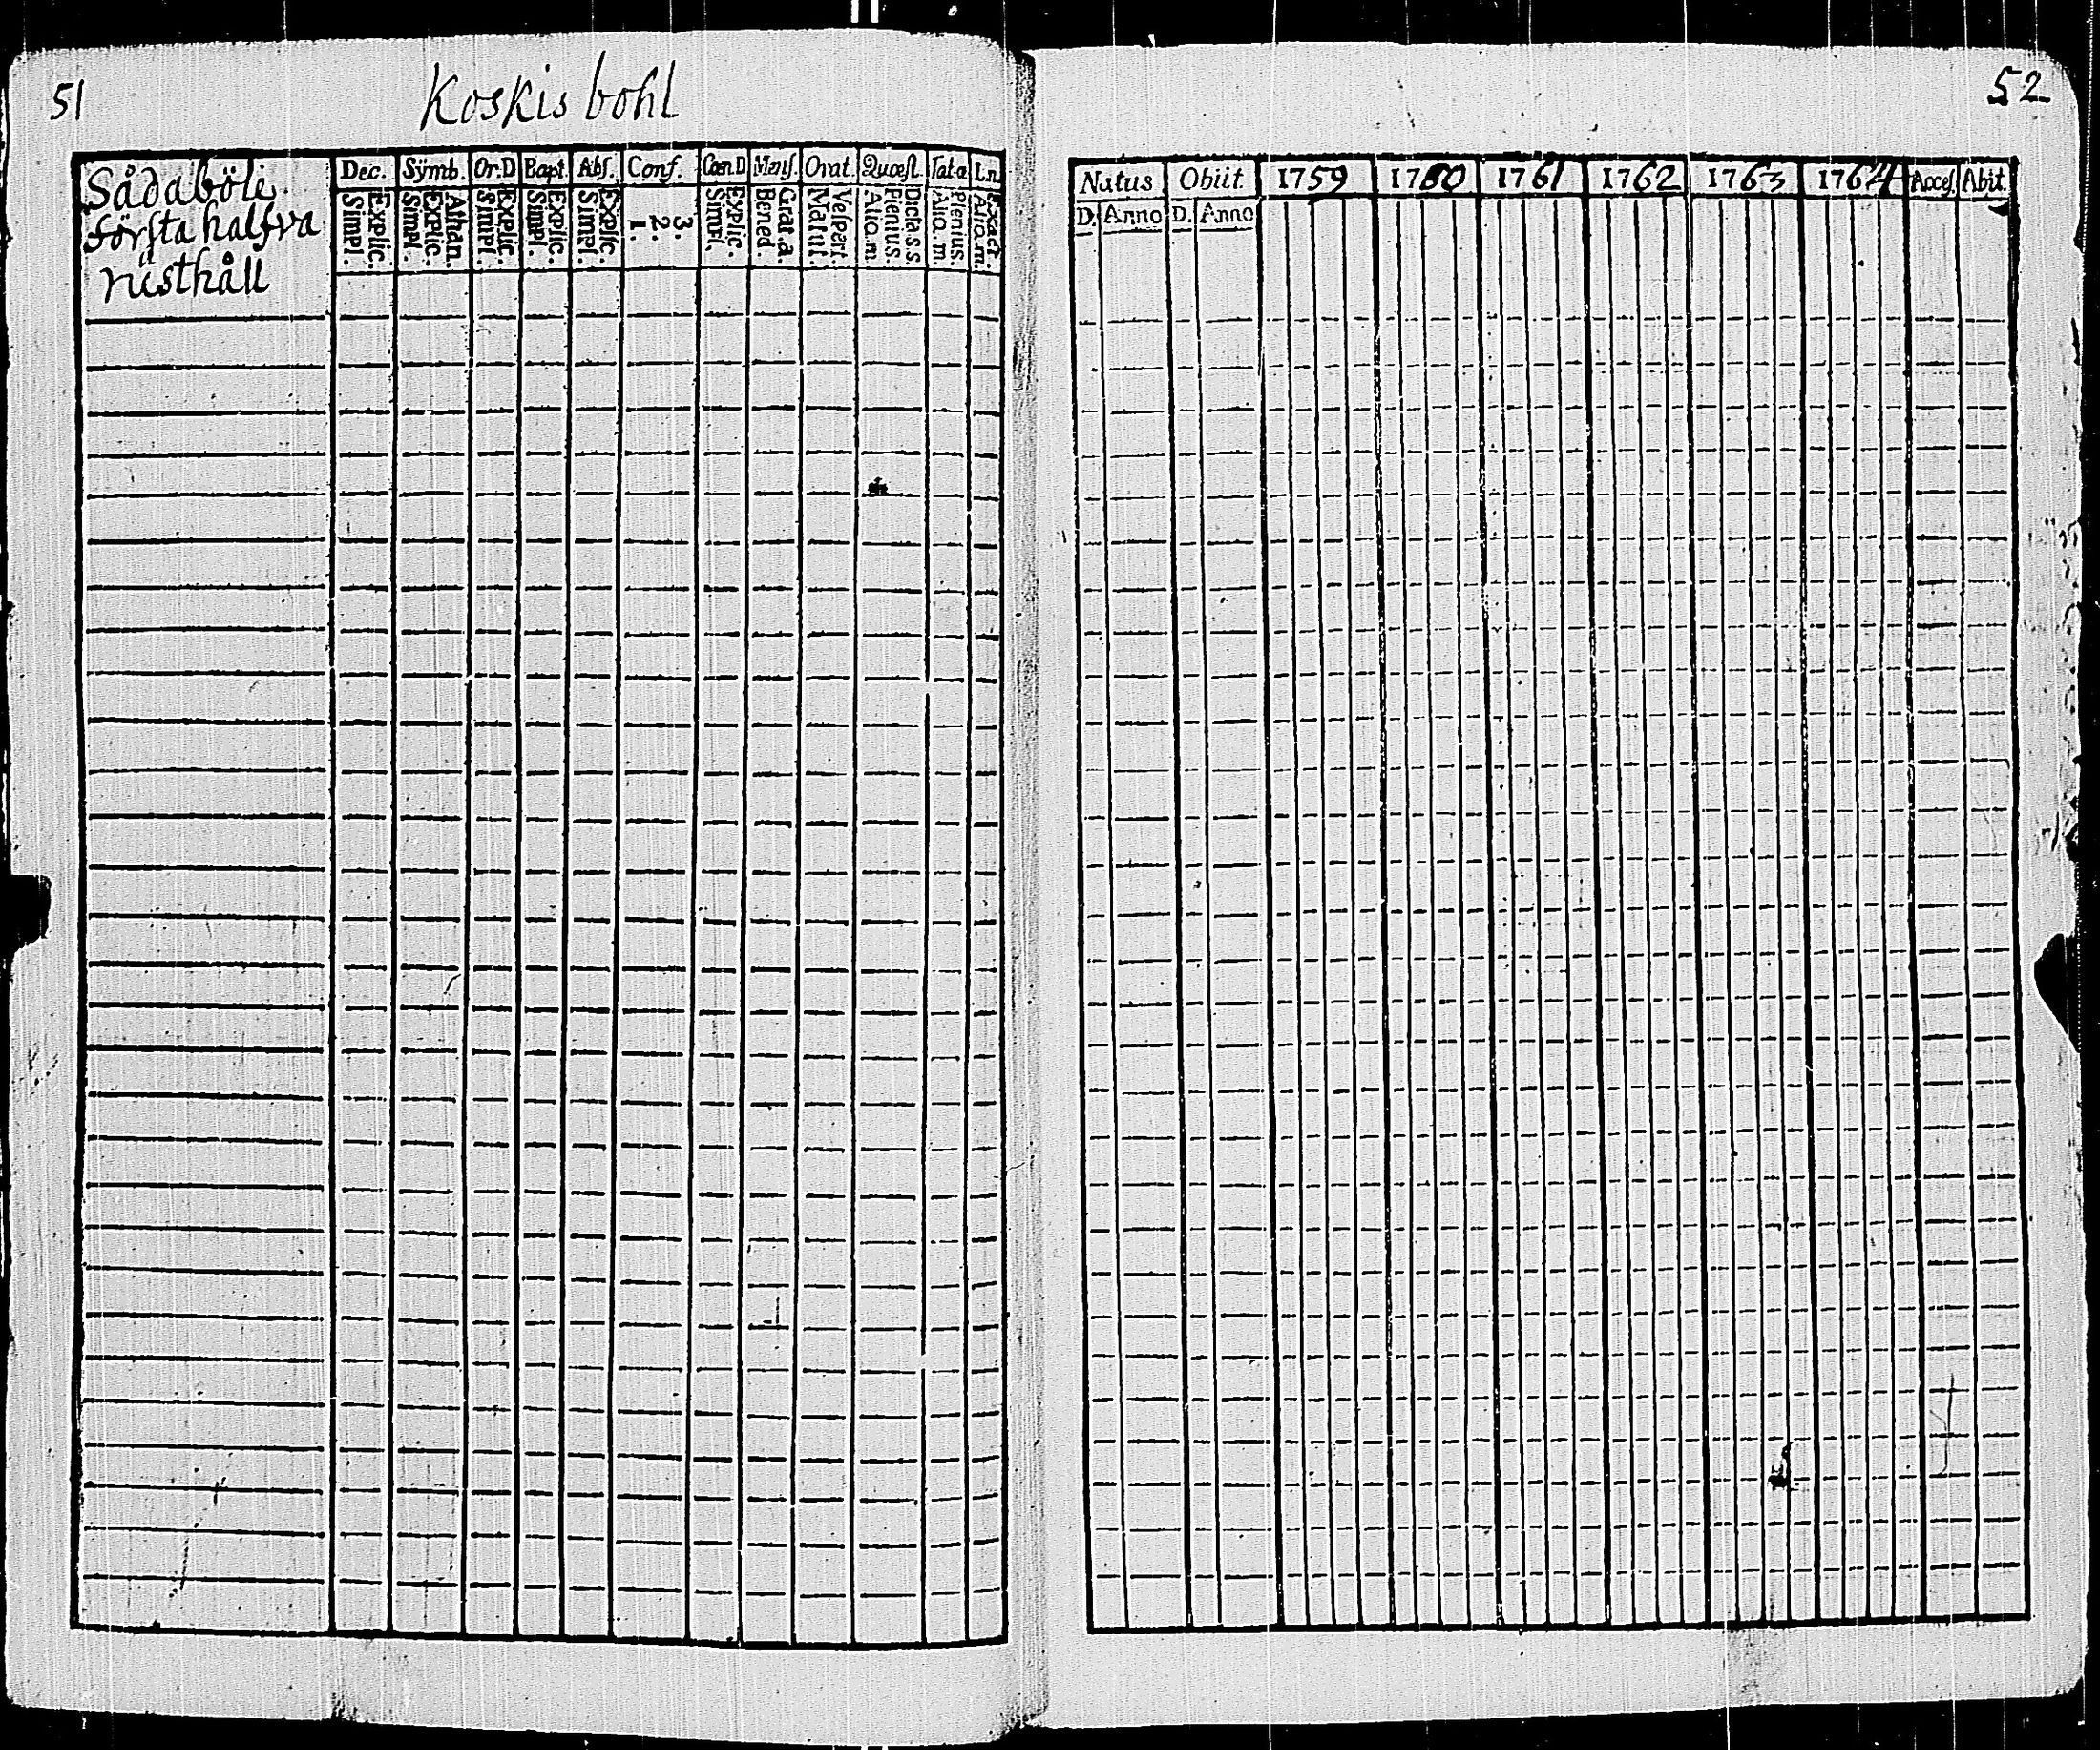 51
Koskis bohl
Sådaböle
första halfva
rusthåll
Dec. Symb. Or.D Bapt. Abs. Conf. Cœn.D Mens. Orat. Quæst. Tab.a L.n
Explic. Simpl.
Athan. Explic. Simpl.
Explic. Simpl.
Explic. Simpl.
Explic. Simpl.
3. 2. 1.
Explic. Simpl.
Grat.a. Bened.
Vespert. Matut.
Dicta.s.s Plenius. Alio.m
Plenius. Alio.m
Exact. Alio.m.
52
Natus Obiit. 1759 1760 1761 1762 1763 1764 Acces. Abit.
D. Anno D. Anno